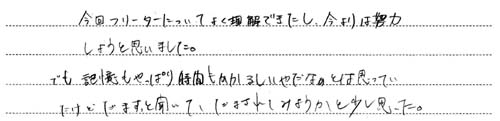 今回フリーターについてよく理解できたし、今よりは努力
しようと思いました。
でも記憶もやっぱり時間もかかるしいやだなのとは思ってい
たけど ますと聞いて、 みようかと少し思った。